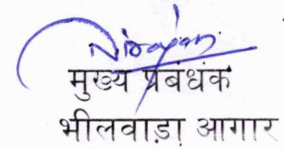 मुख्य प्रबंधक
भीलवाड़ा आगार